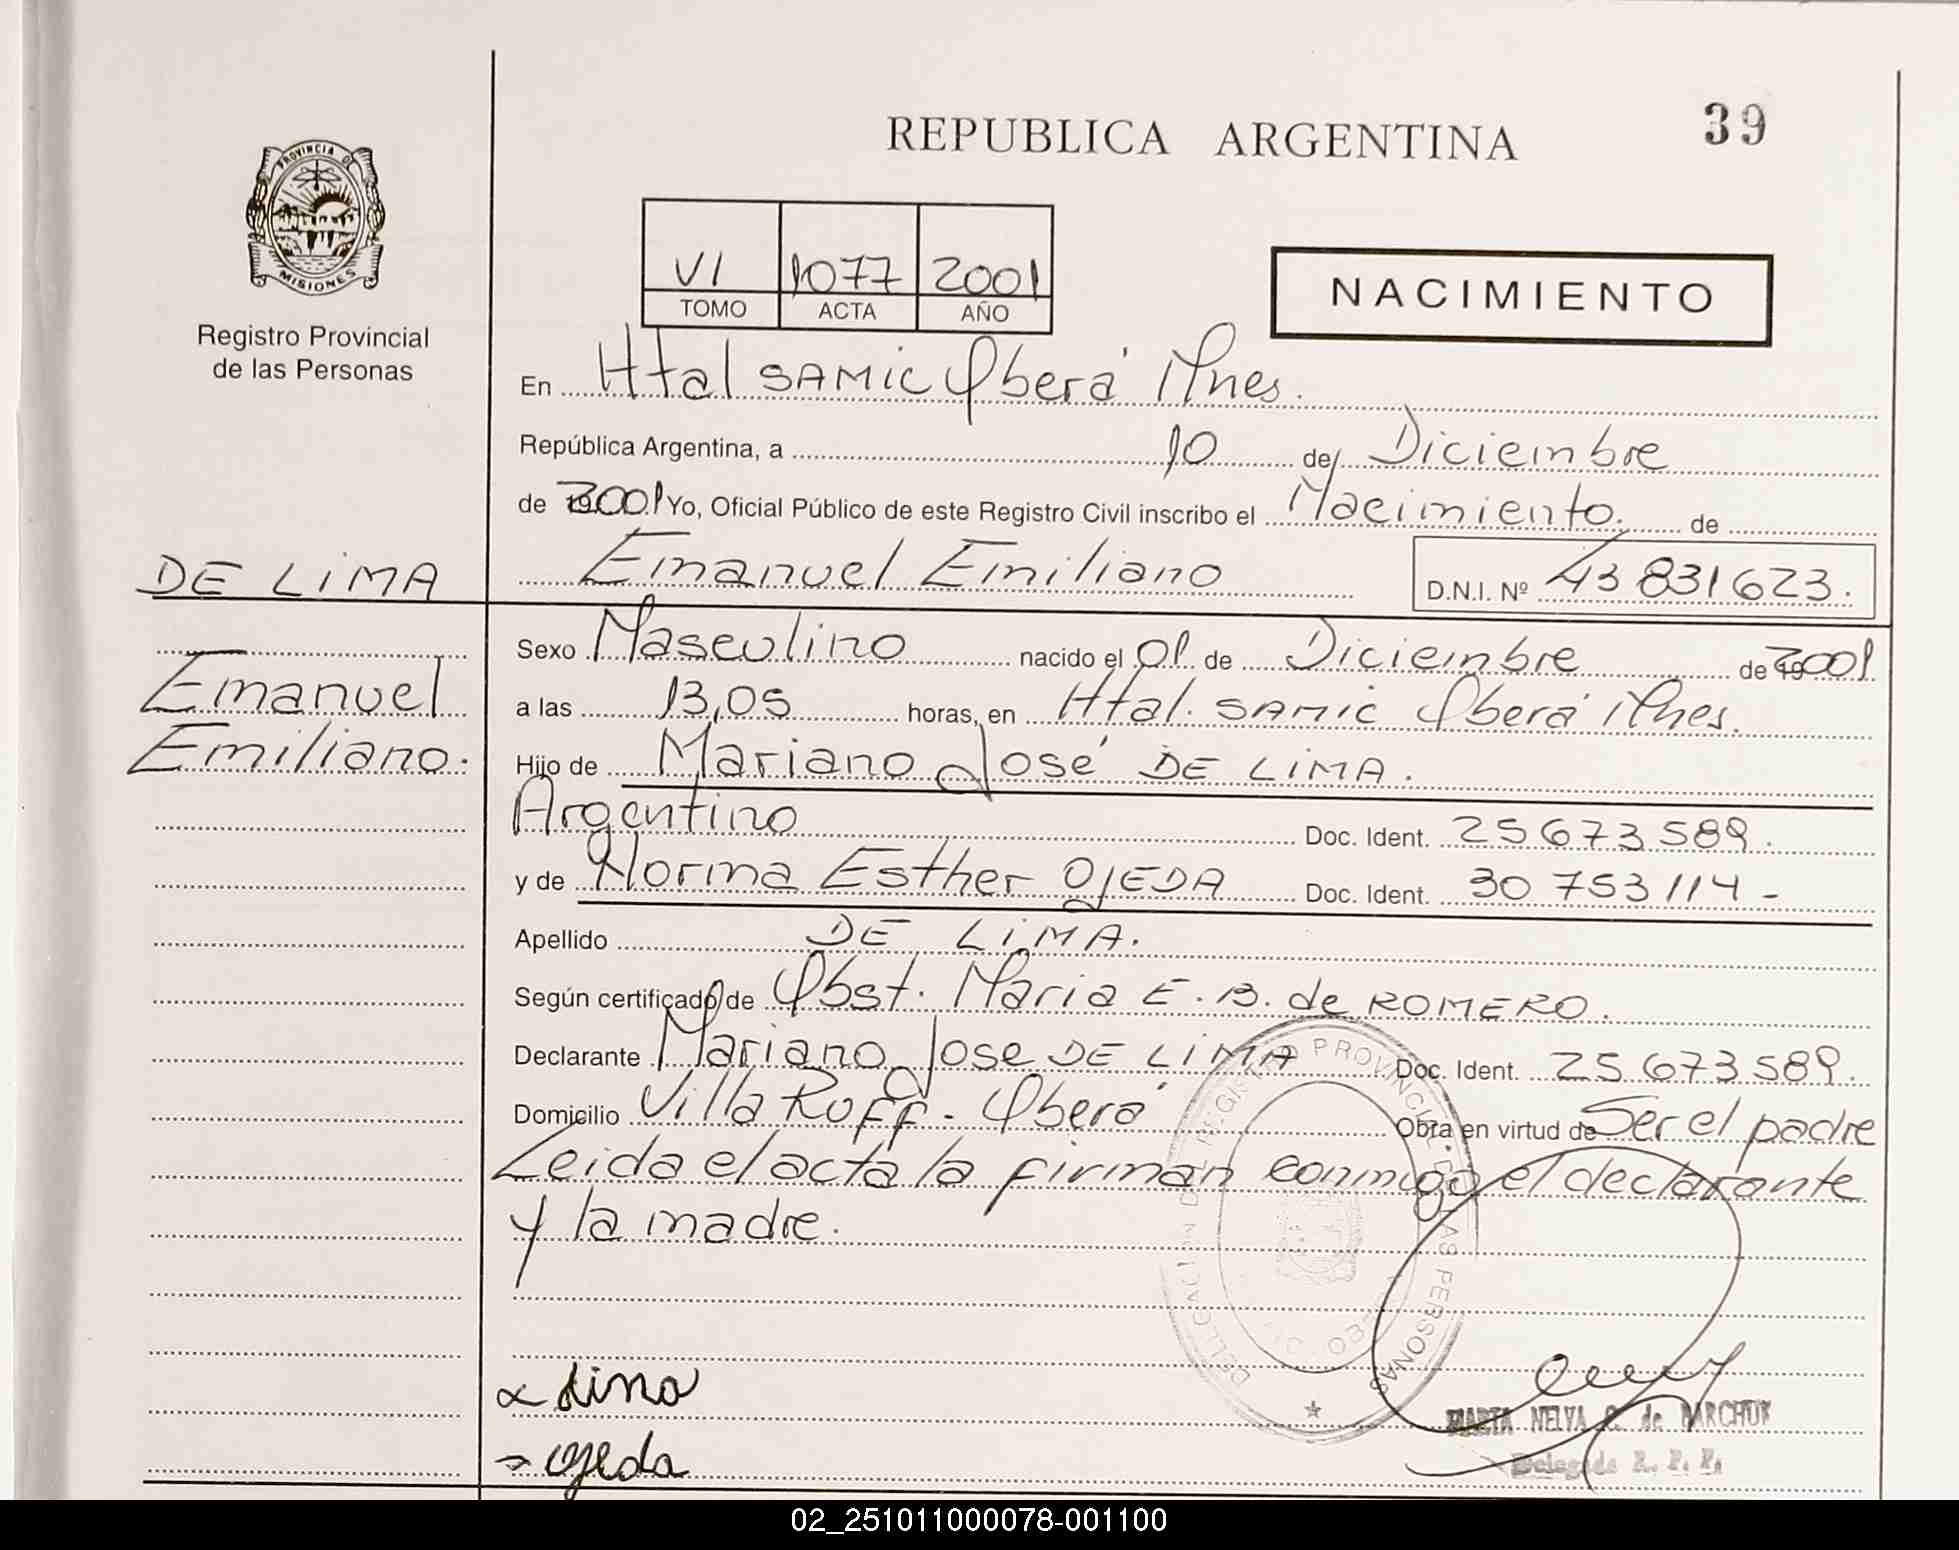 REPUBLICA ARGENTINA
39
PROVINCIA DE
MISIONES
Registro Provincial
de las Personas
VI 1077 2001
TOMO ACTA AÑO
NACIMIENTO
En Htal SAMIC Oberá Mnes.
República Argentina, a 10 de Diciembre
de 2001 Yo, Oficial Público de este Registro Civil inscribo el Nacimiento. de
Emanuel Emiliano D.N.I. Nº 43 831 623.
DE LIMA
Emanuel
Emiliano.
Sexo Masculino nacido el 01 de Diciembre de 2001
a las 13,05 horas, en Htal. SAMIC Oberá Mnes.
Hijo de Mariano José DE LIMA.
Argentino Doc. Ident. 25 673 589.
y de Norma Esther OJEDA Doc. Ident. 30 753 114 -
Apellido DE LIMA.
Según certificado de Obst. Maria E. B. de ROMERO.
Declarante Mariano Jose DE LIMA Doc. Ident. 25 673 589.
Domicilio Villa Ruff - Oberá Obra en virtud de Ser el padre
Leida el acta la firman conmigo el declarante
y la madre.
REGISTRO PROVINCIAL DE LAS PERSONAS
Lima
ojeda
MARTA NELVA C. de BARCHUK
Delegada R. P. P.
02_251011000078-001100